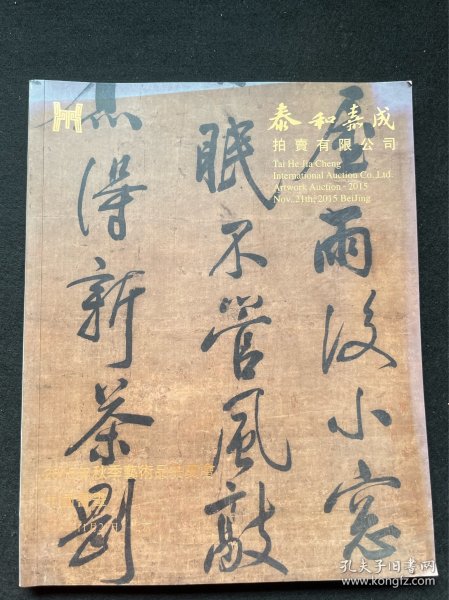 泰和嘉成
拍賣有限公司
Tai He Jia Cheng
International Auction Co.,Ltd
Artwork Auction · 2015
Nov. 21th, 2015 BeiJing
屋雨後小窓
眠不管風敲
得新茶
秋季藝術品
孔夫子旧书网